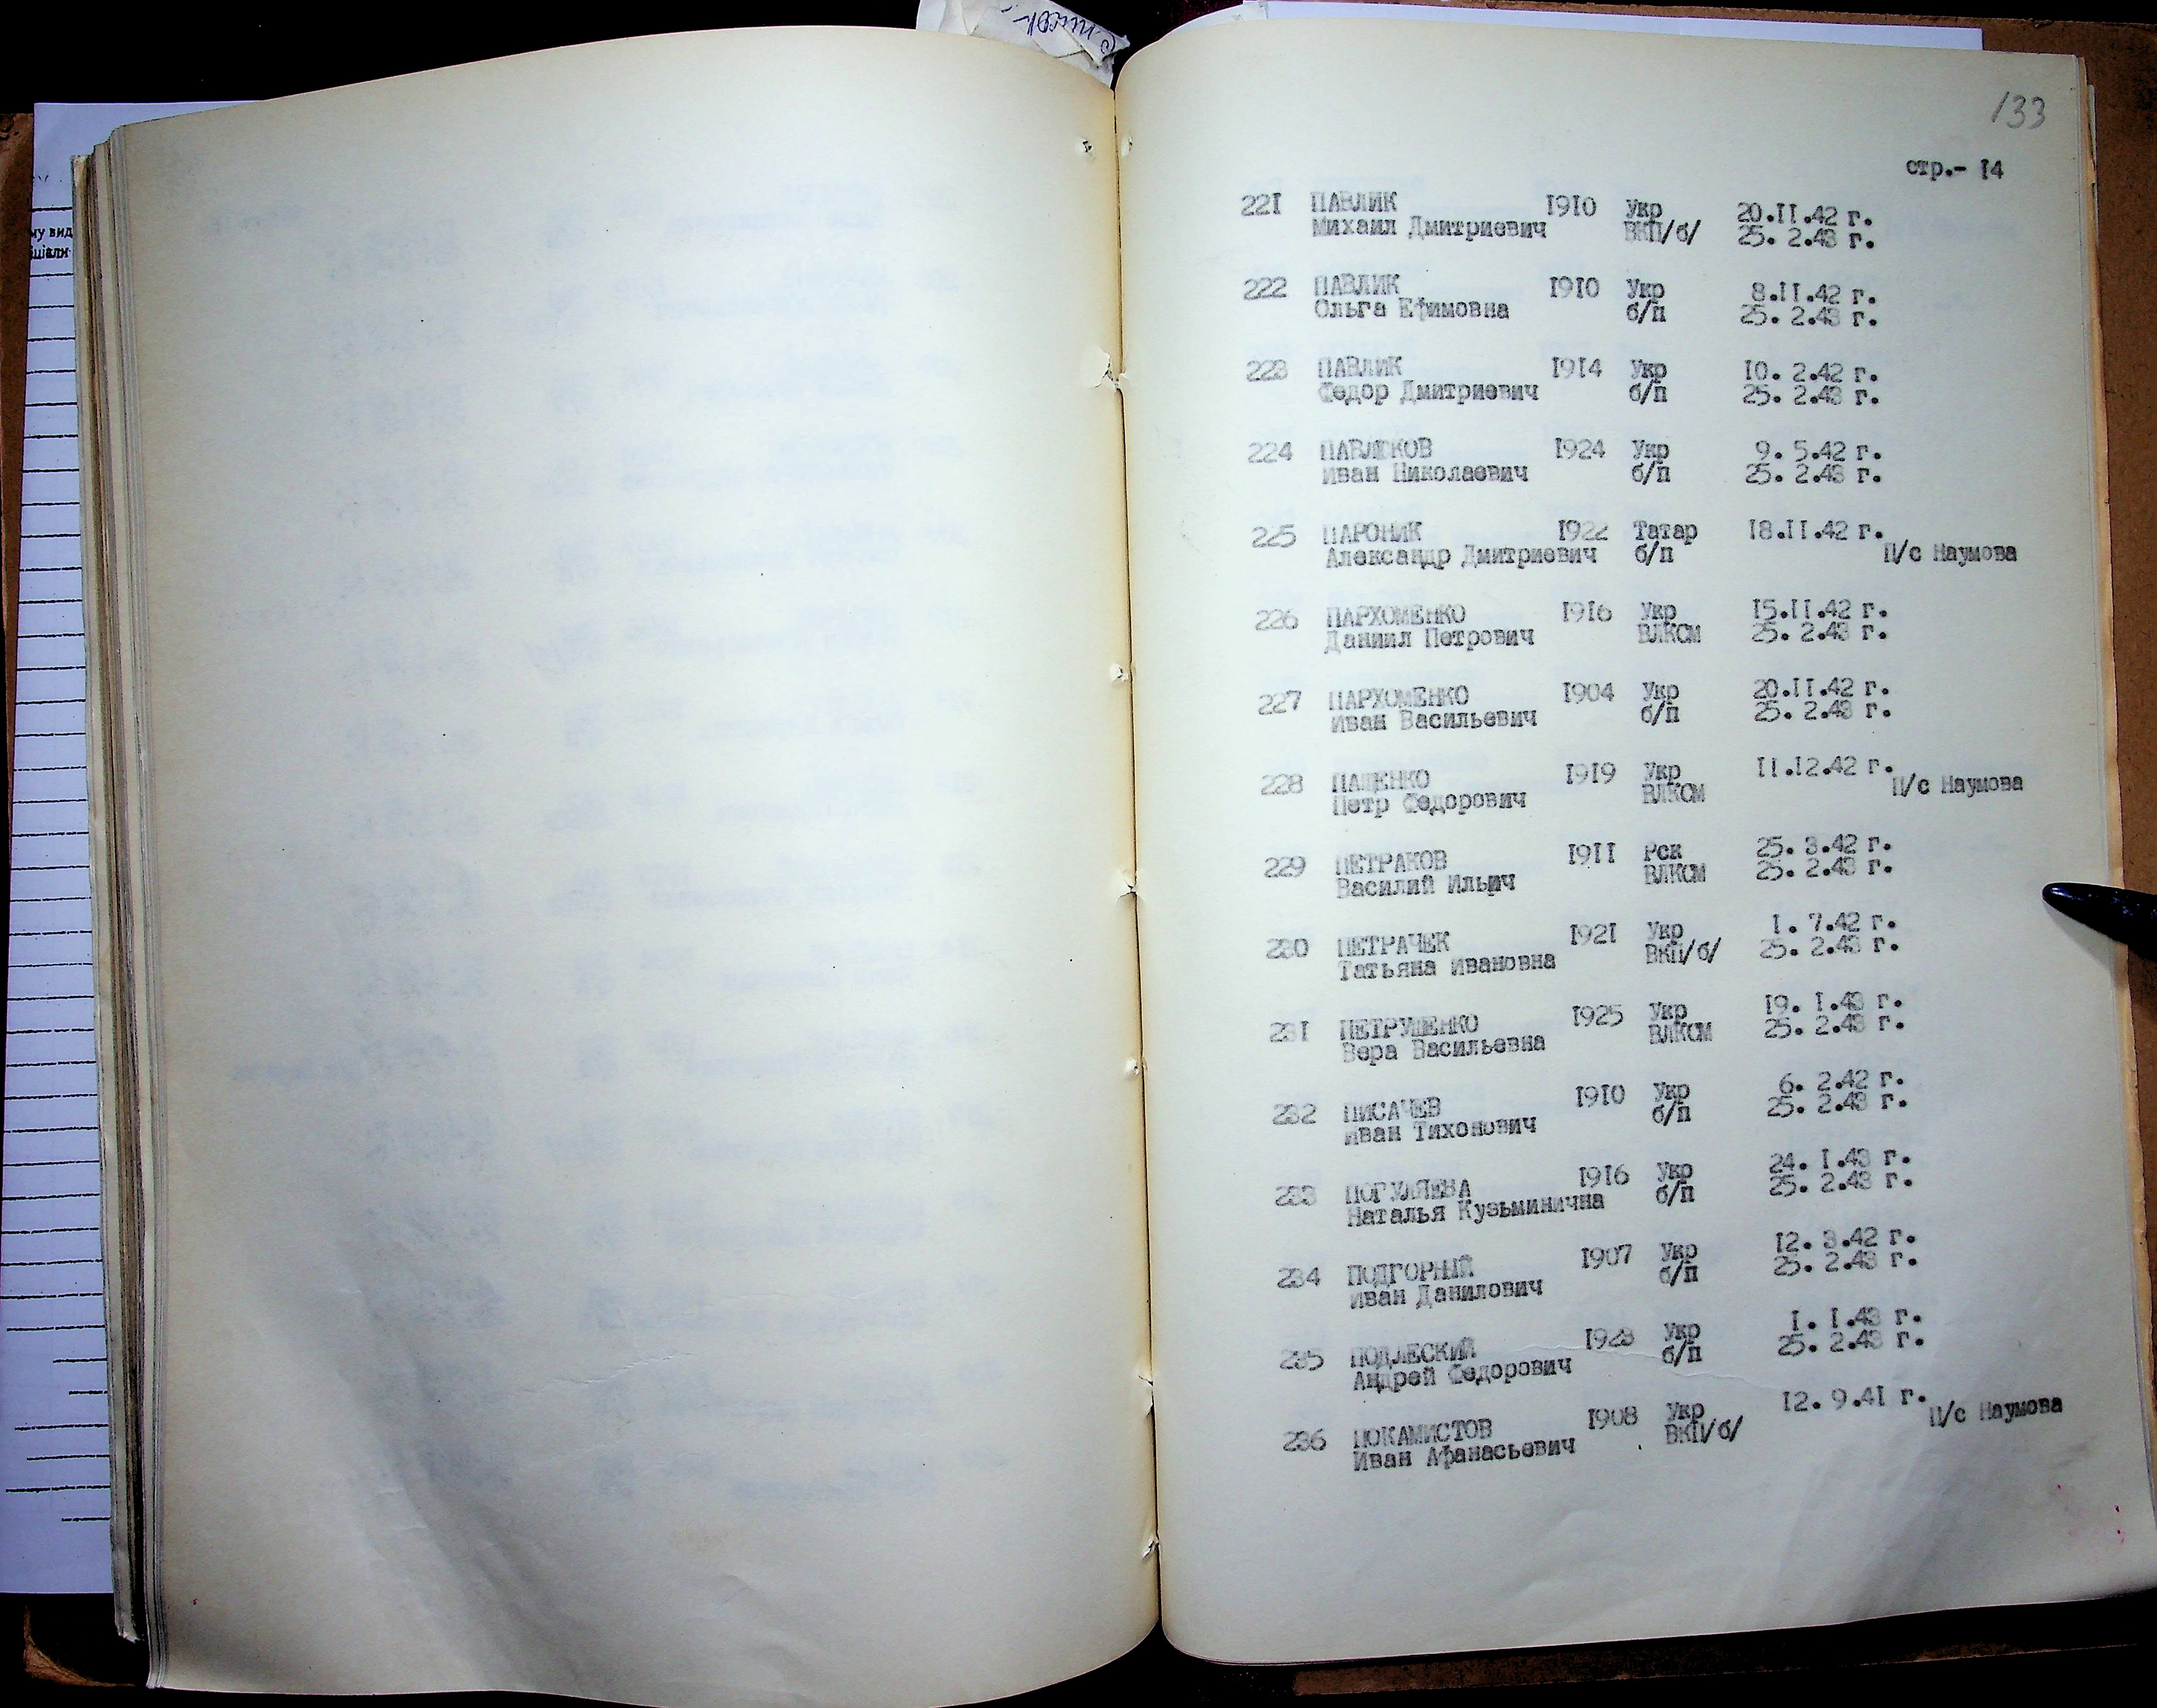 133
стр.- I4
22I ПАВЛИК I9I0 Укр 20.II.42 г.
Михаил Дмитриевич ВКП/б/ 25. 2.43 г.
222 ПАВЛИК I9I0 Укр 8.II.42 г.
Ольга Ефимовна б/п 25. 2.43 г.
223 ПАВЛИК I9I4 Укр I0. 2.42 г.
Федор Дмитриевич б/п 25. 2.43 г.
224 ПАВЛЮКОВ I924 Укр 9. 5.42 г.
Иван Николаевич б/п 25. 2.43 г.
225 ПАРОНИК I922 Татар I8.II.42 г.
Александр Дмитриевич б/п П/с Наумова
226 ПАРХОМЕНКО I9I6 Укр I5.II.42 г.
Даниил Петрович ВЛКСМ 25. 2.43 г.
227 ПАРХОМЕНКО I904 Укр 20.II.42 г.
Иван Васильевич б/п 25. 2.43 г.
228 ПАЩЕНКО I9I9 Укр II.I2.42 г.
Петр Федорович ВЛКСМ П/с Наумова
229 ПЕТРАКОВ I9II Рск 25. 3.42 г.
Василий Ильич ВЛКСМ 25. 2.43 г.
230 ПЕТРАЧЕК I92I Укр I. 7.42 г.
Татьяна Ивановна ВКП/б/ 25. 2.43 г.
23I ПЕТРУШЕНКО I925 Укр I9. I.43 г.
Вера Васильевна ВЛКСМ 25. 2.43 г.
232 ПИСАЧЕВ I9I0 Укр 6. 2.42 г.
Иван Тихонович б/п 25. 2.43 г.
233 ПОГУЛЯЕВА I9I6 Укр 24. I.43 г.
Наталья Кузьминична б/п 25. 2.43 г.
234 ПОДГОРНЫЙ I907 Укр I2. 3.42 г.
Иван Данилович б/п 25. 2.43 г.
235 ПОДЛЕСКИЙ I923 Укр I. I.43 г.
Андрей Федорович б/п 25. 2.43 г.
236 ПОКАМИСТОВ I908 Укр I2. 9.4I г.
Иван Афанасьевич ВКП/б/ П/с Наумова